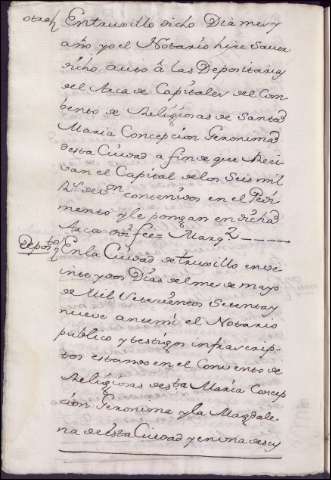 otra En truxillo dicho Dia mes y
año yo el Notario hize saver
dicho auto á las Depositarias
del Arca de Capitales del Com
bento de Religiosas de Santa
Maria Concepcion Geronima
desta Ciudad a fin de que Reci
van el Capital de los Seis mil
Rs. de von contenidos en el Pedi
mento y le pongan en dicha
Arca doi fee= Marqz
Deposto En la Ciudad de truxillo en ve
inte y dos Dias del mes de mayo
de Mil Setecientos Setenta y
nueve ante mi el Notario
publico y testigos infraescrip
tos estando en el Convento de
Religiosas de Sta Maria Concep
cion Geronima y la Magdale
na de esta Ciudad y en una de su